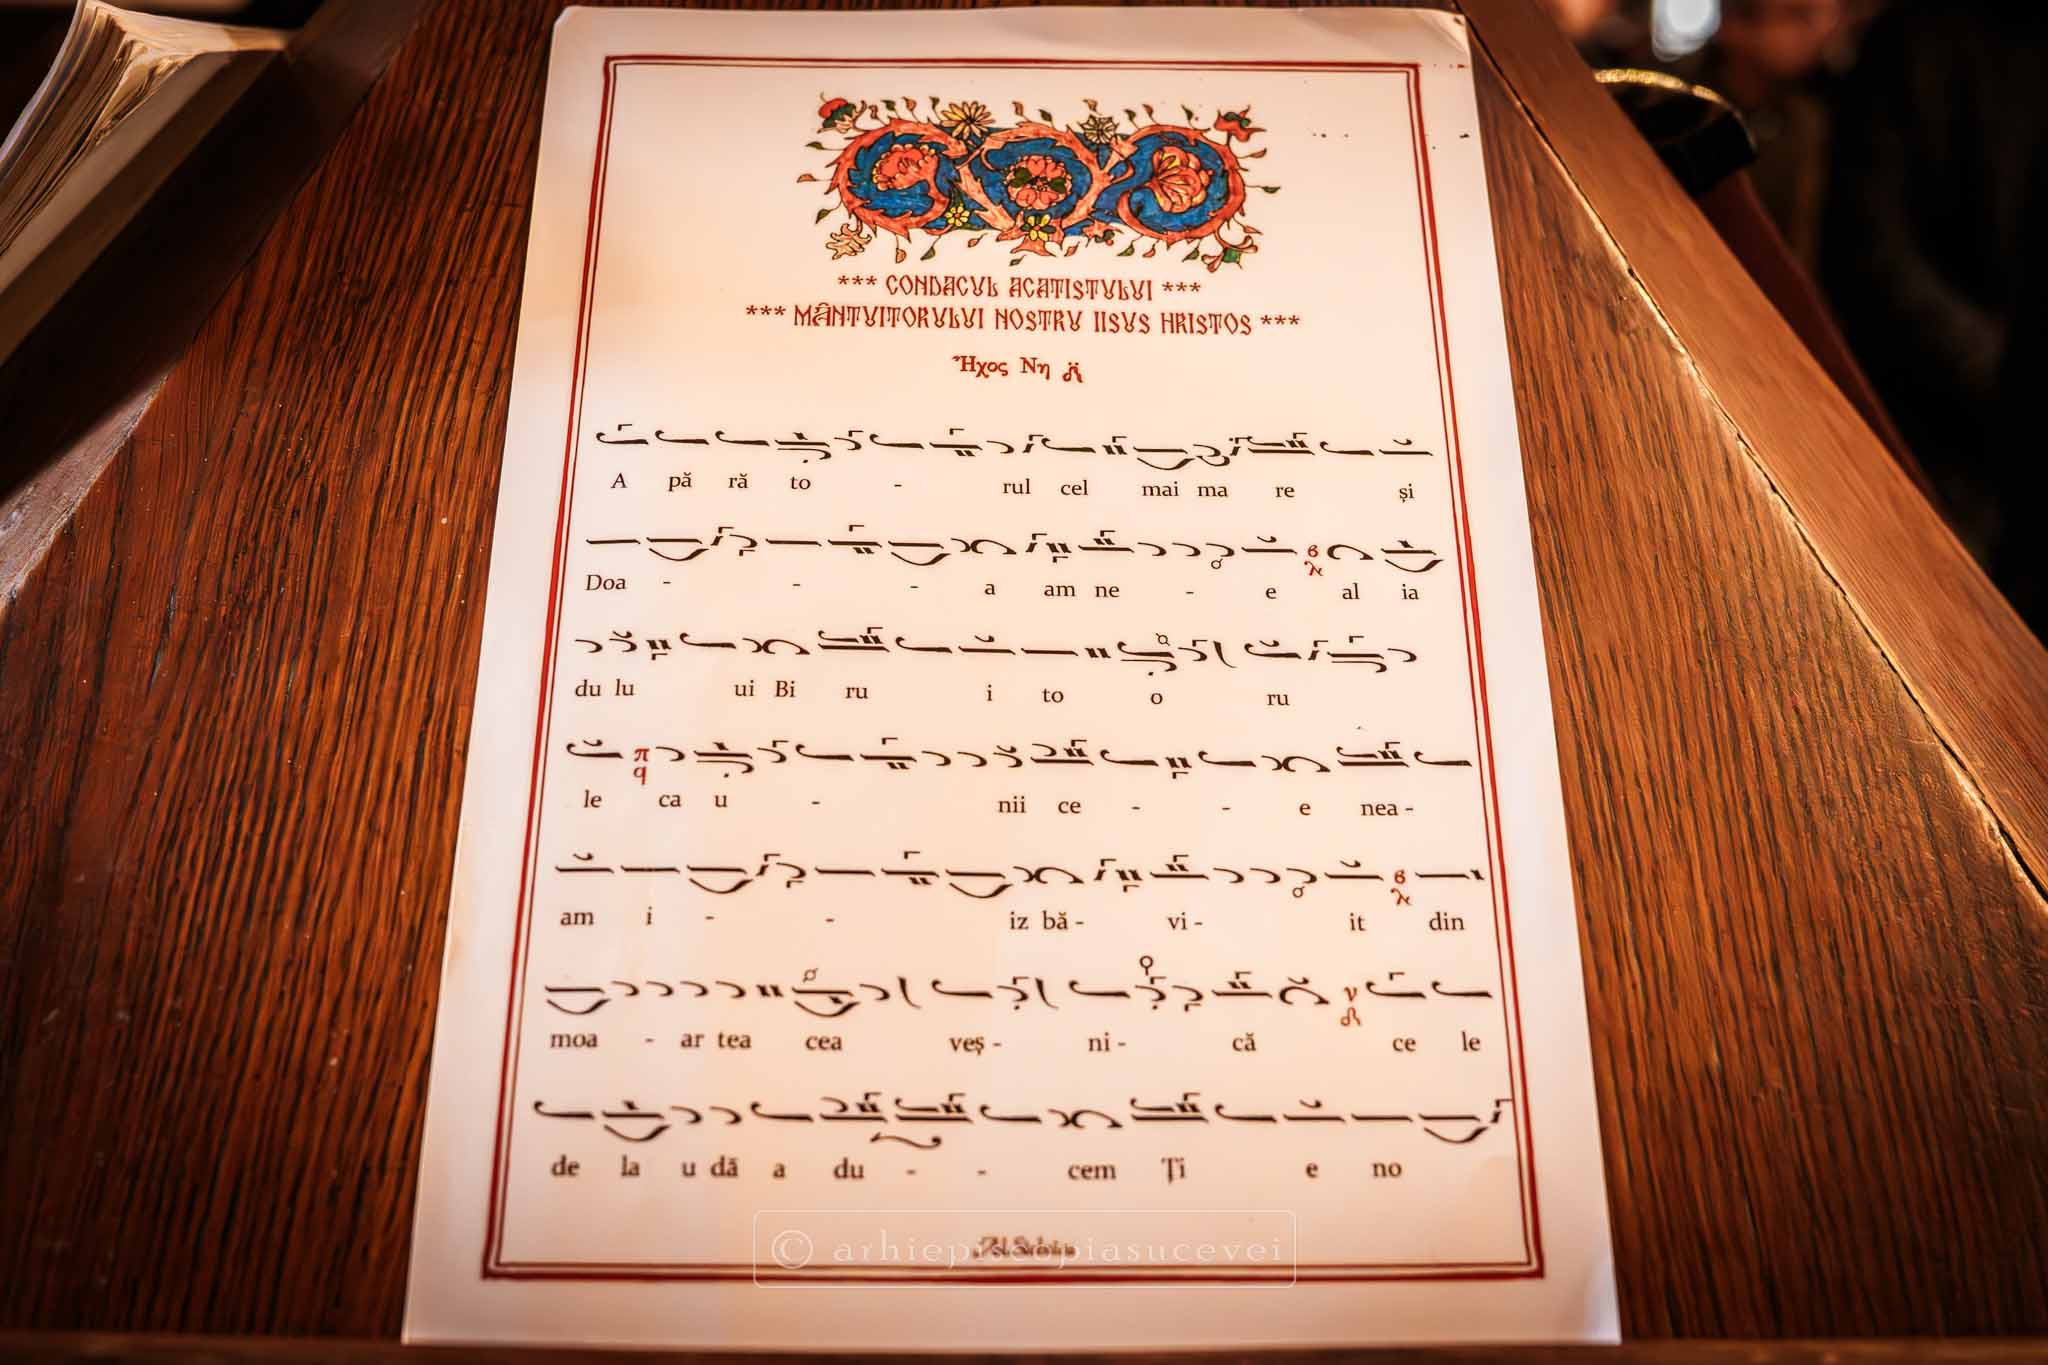 *** CONDACUL ACATISTULUI ***
*** MÂNTUITORULUI NOSTRU IISUS HRISTOS ***
Ἦχος Νη
A pă ră to - rul cel mai ma re și
Doa - - - a am ne - e al ia
du lu ui Bi ru i to o ru
le ca u - nii ce - - e nea-
am i - - iz bă- vi- it din
moa - ar tea cea veș- ni- că ce le
de la u dă a du - - cem Ți e no
© arhiepiscopiasucevei